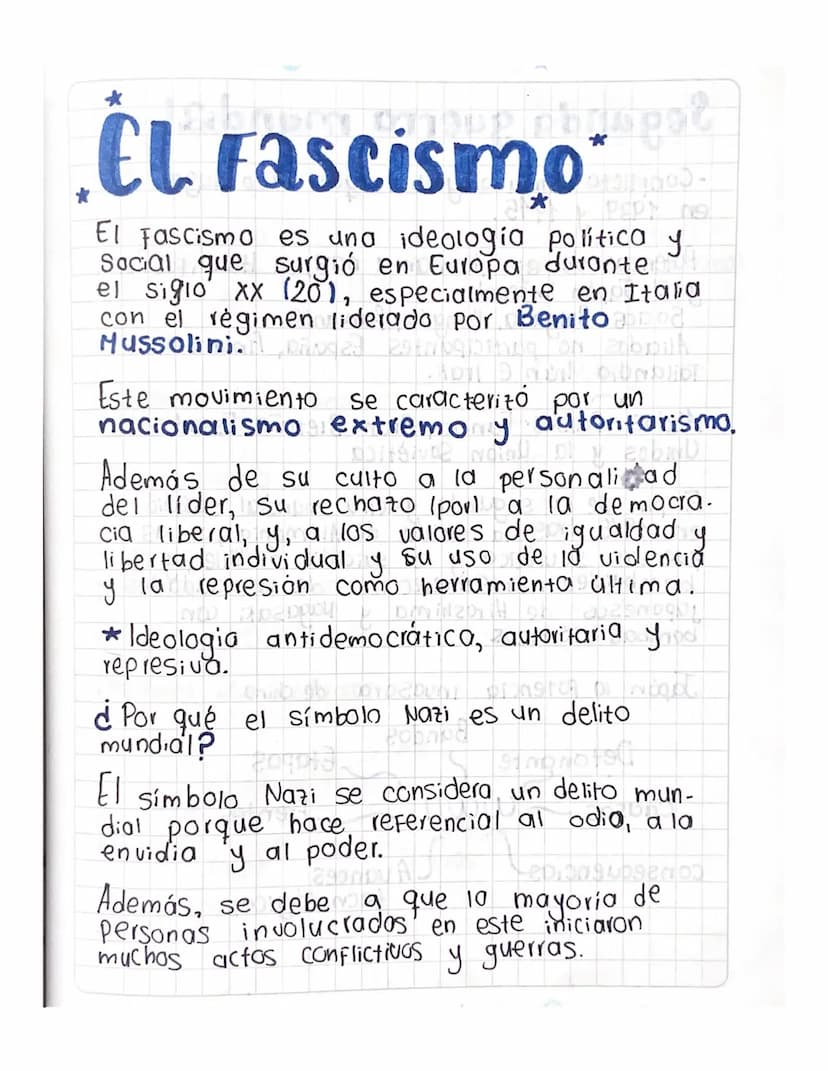 El Fascismo
El Fascismo es una ideología política y
Social que surgió en Europa durante
el siglo XX (20), especialmente en Italia
con el régimen liderado por Benito
Mussolini.
Este movimiento se caracterizó por un
nacionalismo extremo y autoritarismo.
Además de su culto a la personalidad
del líder, su rechazo (por) a la democra-
cia liberal, y, a los valores de igualdad y
libertad individual y su uso de la violencia
y la represión como herramienta última.
*Ideologia antidemocrática, autoritaria y
represiva.
¿Por qué el símbolo Nazi es un delito
mundial?
El símbolo Nazi se considera un delito mun-
dial porque hace referencial al odio, a la
envidia y al poder.
Además, se debe a que la mayoría de
personas involucrados en este iniciaron
muchos actos conflictivos y guerras.